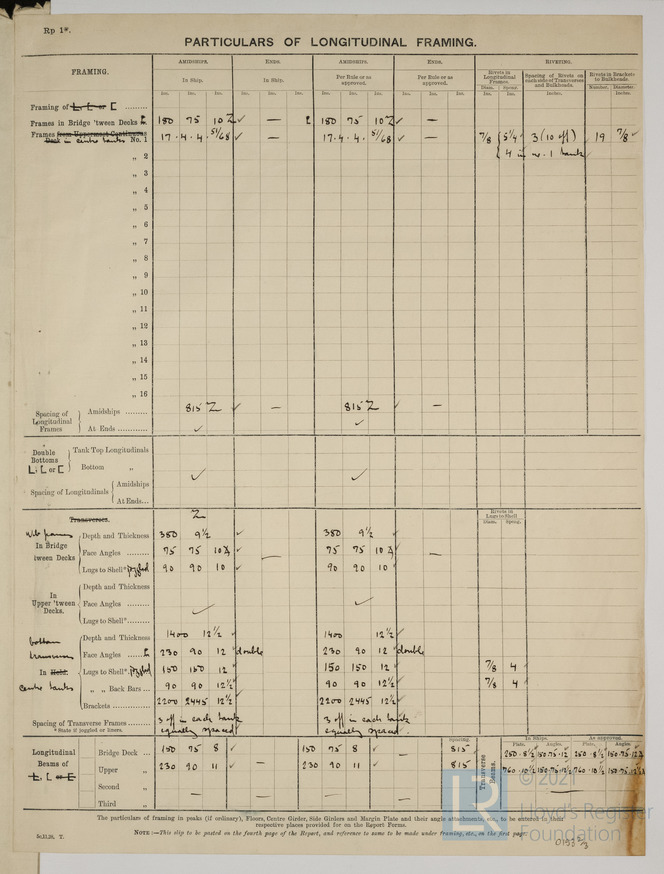 Rp 1*.
PARTICULARS OF LONGITUDINAL FRAMING.
FRAMING. AMIDSHIPS. ENDS. AMIDSHIPS. ENDS. RIVETING.
In Ship. In Ship. Per Rule or as approved. Per Rule or as approved. Rivets in Longitudinal Frames. Spacing of Rivets on each side of Transverses and Bulkheads. Rivets in Brackets to Bulkheads.
Ins. Ins. Ins. Ins. Ins. Ins. Ins. Ins. Ins. Ins. Ins. Ins. Diam. Ins. Spcng. Ins. Inches. Number. Diameter. Inches.
Framing of L, L or [ .........
Frames in Bridge 'tween Decks 180 75 10 ✓ — 180 75 10 ✓ —
Frames from Uppermost Continuous Deck in centre tanks No. 1 17.4.4.51/68 ✓ 17.4.4.51/68 ✓ 7/8 5 1/4 3 (10 off) 19 7/8 ✓
„ 2 4 in w. 1 tank
„ 3
„ 4
„ 5
„ 6
„ 7
„ 8
„ 9
„ 10
„ 11
„ 12
„ 13
„ 14
„ 15
„ 16
Spacing of Longitudinal Frames { Amidships ......... 815 ✓ — 815 ✓ —
At Ends ......... ✓ ✓
Double Bottoms L, [ or [ } Tank Top Longitudinals
Bottom „ ✓ ✓
Spacing of Longitudinals { Amidships
At Ends...
Transverses. Rivets in Lugs to Shell
Diam. Spcng.
Web frames In Bridge 'tween Decks { Depth and Thickness 380 9½ ✓ 380 9½ ✓
Face Angles ......... 75 75 10 ✓ — 75 75 10 —
Lugs to Shell* joggled 90 90 10 ✓ 90 90 10 ✓
In Upper 'tween Decks. { Depth and Thickness
Face Angles ......... ✓ ✓
Lugs to Shell* ......
bottom transverses In Hold. centre tanks { Depth and Thickness 1400 12½ 1400 12½
Face Angles ...... 230 90 12 double 230 90 12 double
Lugs to Shell* joggled 150 150 12 150 150 12 7/8 4
„ „ Back Bars ... 90 90 12½ 90 90 12½ 7/8 4
Brackets ......... 2200 2445 12½ 2200 2445 12½
Spacing of Transverse Frames ...... 3 off in each tank equally spaced 3 off in each tank equally spaced
* State if joggled or liners.
Longitudinal Beams of L, [ or [ Spacing. Transverse Beams. In Ships. As approved.
Plate. Angles. Plate. Angles.
Bridge Deck ... 150 75 8 ✓ 150 75 8 ✓ — 815 250 · 8½ 150·75·12 250 · 8½ 150·75·12
Upper „ 230 90 11 ✓ — 230 90 11 ✓ 815 760 · 10½ 150·75·12½ 760 · 10½ 150·75·12½
Second „ —
Third „
The particulars of framing in peaks (if ordinary), Floors, Centre Girder, Side Girders and Margin Plate and their angle attachments, etc., to be entered in their respective places provided for on the Report Forms.
NOTE:—This slip to be posted on the fourth page of the Report, and reference to same to be made under framing, etc., on the first page.
5c,11,26. T.
LR
© 2021
Lloyd's Register
Foundation